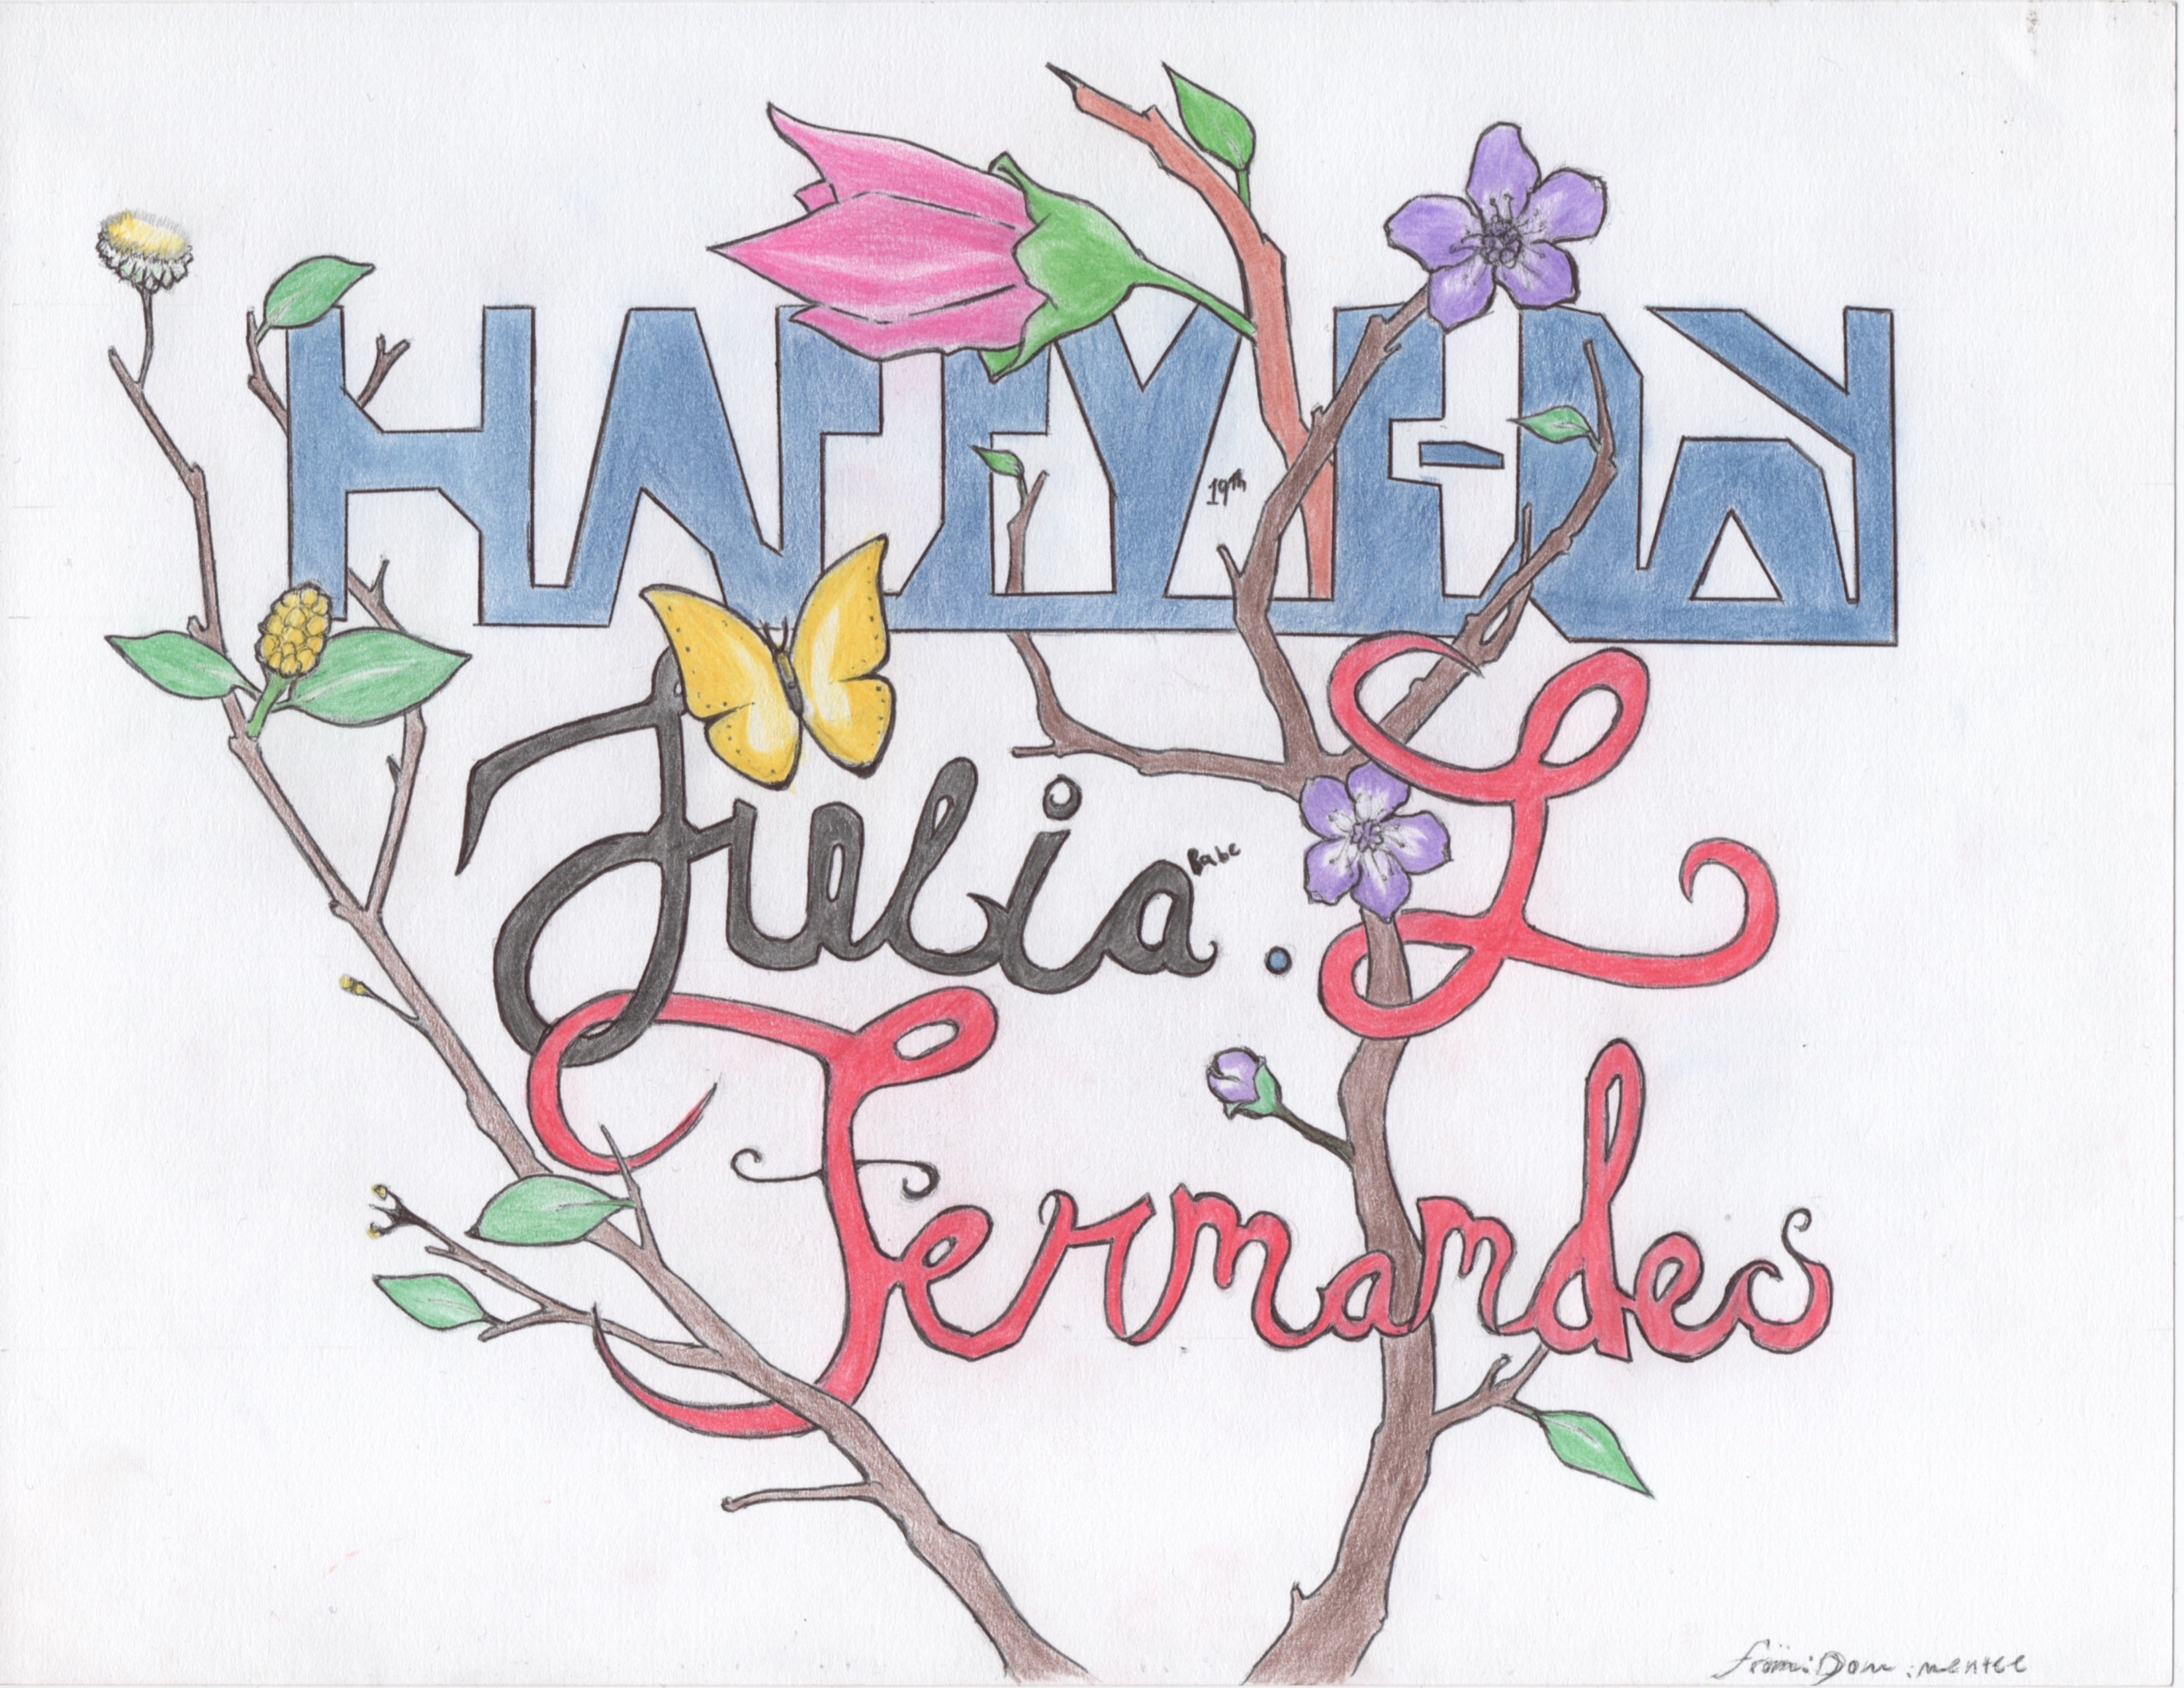 HAPPY B-DAY
19th
Julia. L
Babe
Fernandes
from: Dom